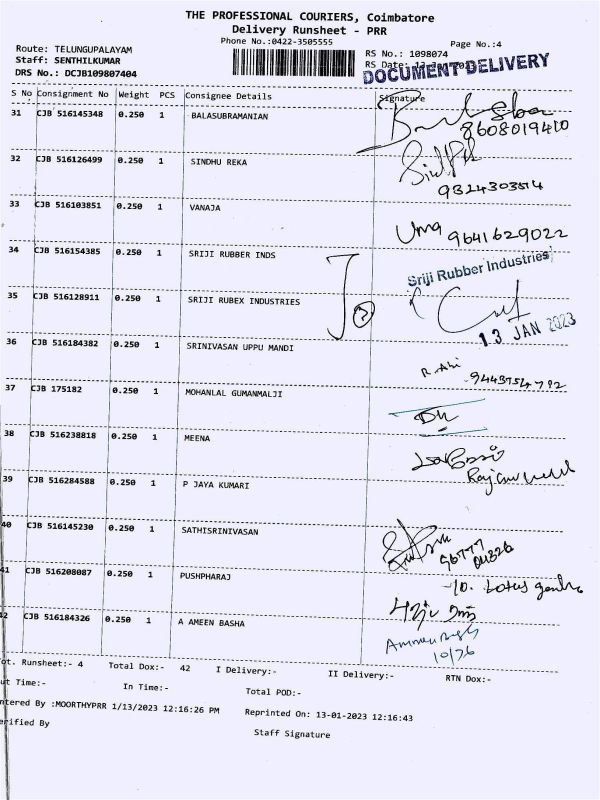 THE PROFESSIONAL COURIERS, Coimbatore
Delivery Runsheet - PRR
Phone No.:0422-3505555
Page No.:4
Route: TELUNGUPALAYAM
RS No.: 1098074
Staff: SENTHILKUMAR
RS Date:
DRS No.: DCJB109807404
DOCUMENT DELIVERY
S No Consignment No Weight PCS Consignee Details Signature
31 CJB 516145348 0.250 1 BALASUBRAMANIAN
8608019410
32 CJB 516126499 0.250 1 SINDHU REKA
9324303514
33 CJB 516103851 0.250 1 VANAJA
Uma 9641629022
34 CJB 516154385 0.250 1 SRIJI RUBBER INDS
Sriji Rubber Industries
35 CJB 516128911 0.250 1 SRIJI RUBEX INDUSTRIES
13 JAN 2023
36 CJB 516184382 0.250 1 SRINIVASAN UPPU MANDI
37 CJB 175182 0.250 1 MOHANLAL GUMANMALJI
38 CJB 516238818 0.250 1 MEENA
39 CJB 516284588 0.250 1 P JAYA KUMARI
40 CJB 516145230 0.250 1 SATHISRINIVASAN
41 CJB 516208087 0.250 1 PUSHPHARAJ
10. Lotus
42 CJB 516184326 0.250 1 A AMEEN BASHA
10/76
ot. Runsheet:- 4 Total Dox:- 42 I Delivery:- II Delivery:- RTN Dox:-
ut Time:- In Time:- Total POD:-
ntered By :MOORTHYPRR 1/13/2023 12:16:26 PM Reprinted On: 13-01-2023 12:16:43
erified By Staff Signature